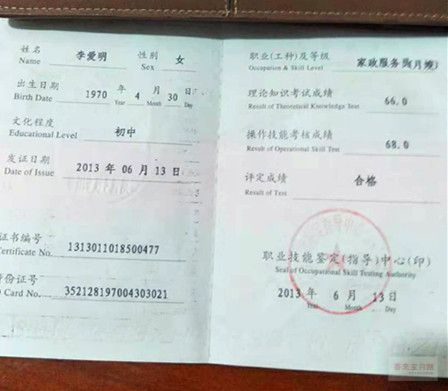 姓名 李爱明 性别 女
Name Sex
出生日期 1970 年 4 月 30 日
Birth Date Year Month Day
文化程度 初中
Educational Level
发证日期 2013 年 06 月 13 日
Date of Issue Year Month Day
证书编号 1313011018500477
Certificate No.
身份证号 352128197004303021
ID Card No.
职业(工种)及等级 家政服务员(月嫂)
Occupation & Skill Level
理论知识考试成绩 66.0
Result of Theoretical Knowledge Test
操作技能考核成绩 68.0
Result of Operational Skill Test
评定成绩 合格
Result of Test
职业技能鉴定(指导)中心(印)
Seal of Occupational Skill Testing Authority
2013 年 6 月 13 日
Year Month Day